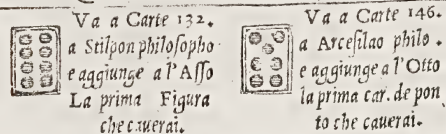 Va a Carte 132.
a Stilpon philoſopho
e aggiunge a l'Aſſo
La prima Figura
che cauerai.
Va a Carte 146.
a Arceſilao philo.
e aggiunge a l'Otto
la prima car. de pon
to che cauerai.